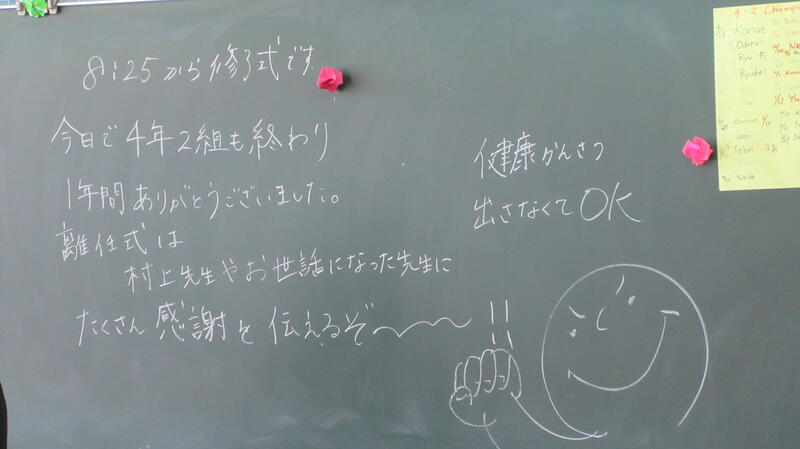 8:25から修了式です
今日で4年2組も終わり
1年間ありがとうございました。
離任式は
村上先生やお世話になった先生に
たくさん感謝を伝えるぞ〜〜〜!!
健康かんさつ
出さなくてOK
4-2 Champi
Kanae
Odorii
Ryu
Ryuhei
Tebin
Yurika